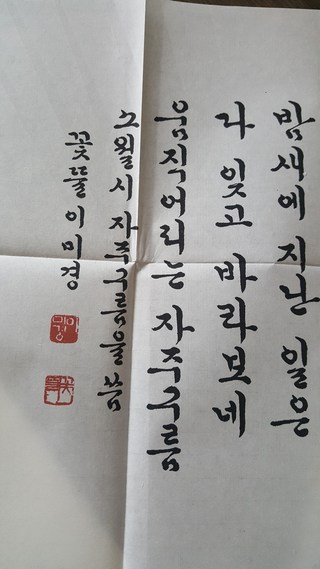 밤새에 지난 일은
다 잊고 바라보네
움직어리는 자주구름
소월 시 자주구름을 씀
꽃뜰 이미경
이미경
꽃뜰